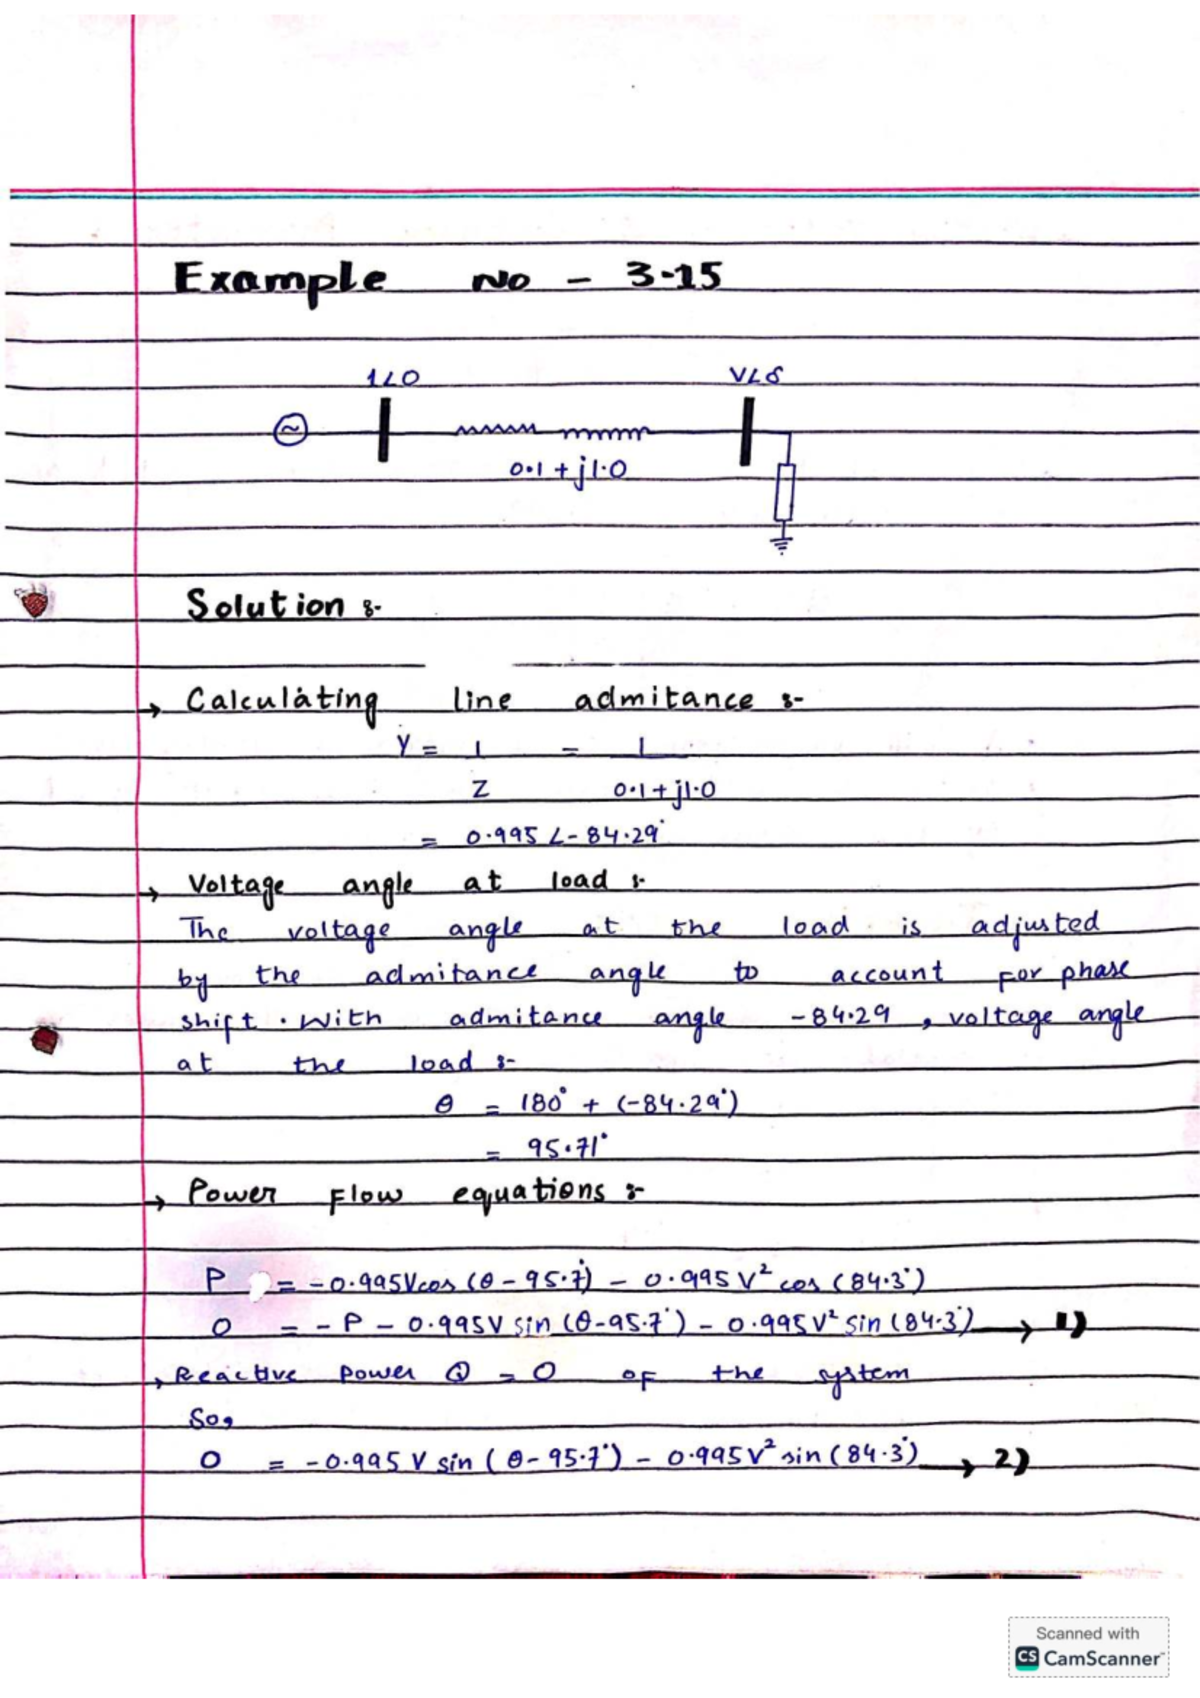 Example No - 3.15
1∠0
V∠δ
~
0.1 + j1.0
Solution :-
→ Calculating line admitance :-
Y = 1 = 1
Z 0.1 + j1.0
= 0.995 ∠ - 84.29°
→ Voltage angle at load :-
The voltage angle at the load is adjusted
by the admitance angle to account for phase
shift. With admitance angle -84.29, voltage angle
at the load :-
θ = 180° + (-84.29°)
= 95.71°
→ Power Flow equations :-
P = -0.995Vcos (θ - 95.7°) - 0.995 V² cos (84.3°)
0 = - P - 0.995V sin (θ-95.7°) - 0.995V² sin (84.3°) → 1)
→ Reactive power Q = 0 of the system
So,
0 = -0.995 V sin (θ - 95.7°) - 0.995V² sin (84.3°) → 2)
Scanned with
CS CamScanner